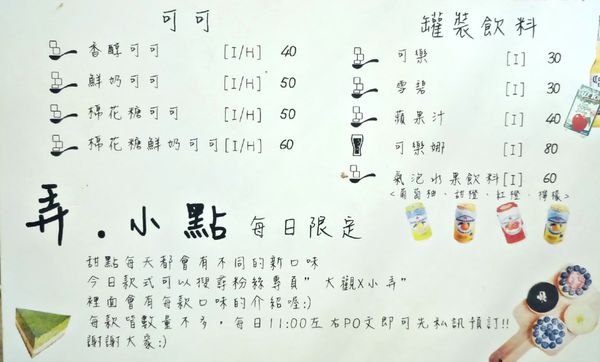 可可
香醇可可 [I/H] 40
鮮奶可可 [I/H] 50
棉花糖可可 [I/H] 50
棉花糖鮮奶可可 [I/H] 60
罐裝飲料
可樂 [I] 30
雪碧 [I] 30
蘋果汁 [I] 40
可樂娜 [I] 80
氣泡水果飲料 [I] 60
<葡萄柚、甜橙、紅橙、檸檬>
弄.小點 每日限定
甜點每天都會有不同的新口味
今日款式可以搜尋粉絲專頁"大觀X小弄"
裡面會有每款口味的介紹喔:)
每款皆數量不多,每日11:00左右PO文即可先私訊預訂!!
謝謝大家:)